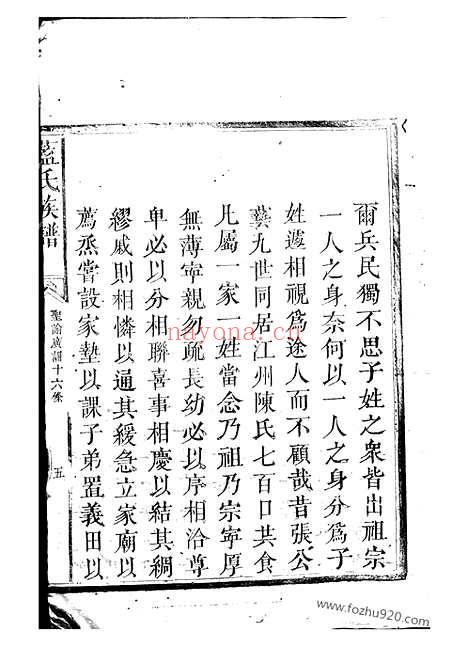 爾兵民獨不思子姓之衆皆出祖宗
一人之身奈何以一人之身分爲子
姓遽相視爲途人而不顧哉昔張公
藝九世同居江州陳氏七百口共食
凡屬一家一姓當念乃祖乃宗寧厚
無薄寧親勿疏長幼必以序相洽尊
卑必以分相聯喜事相慶以結其綢
繆戚則相憐以通其緩急立家廟以
薦烝嘗設家塾以課子弟置義田以
藍氏族譜
聖諭廣訓十六條
五
nayona.cn
www.fozhu920.com